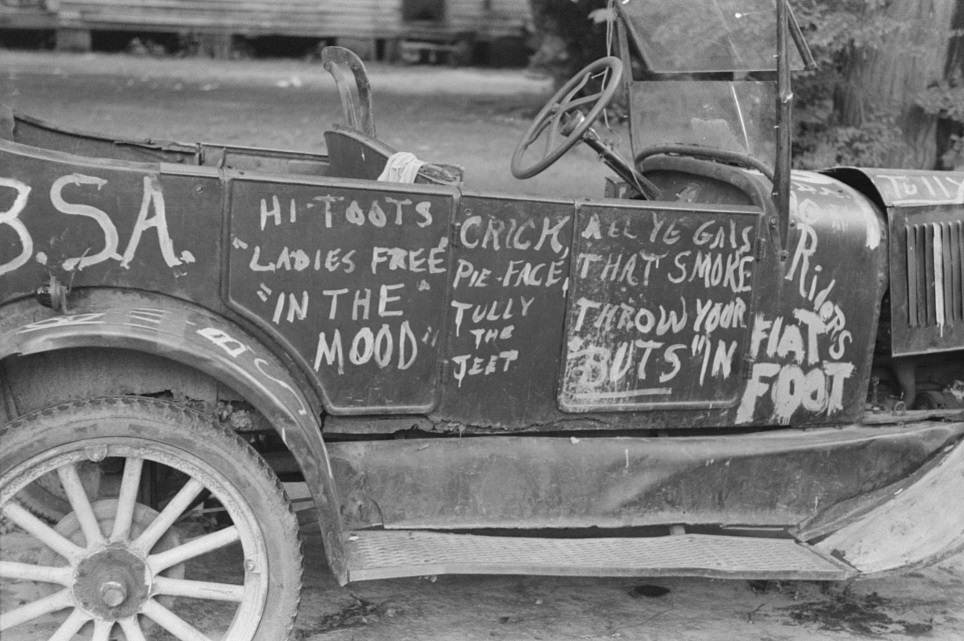 B.S.A.
HI-TOOTS
"LADIES FREE"
"IN THE"
MOOD"
"CRICK,
PIE-FACE,
TULLY
THE
JEET
ALL YE GALS
THAT SMOKE
THROW YOUR
"BUTS" IN
Riders
FLAT
FOOT
TULLY